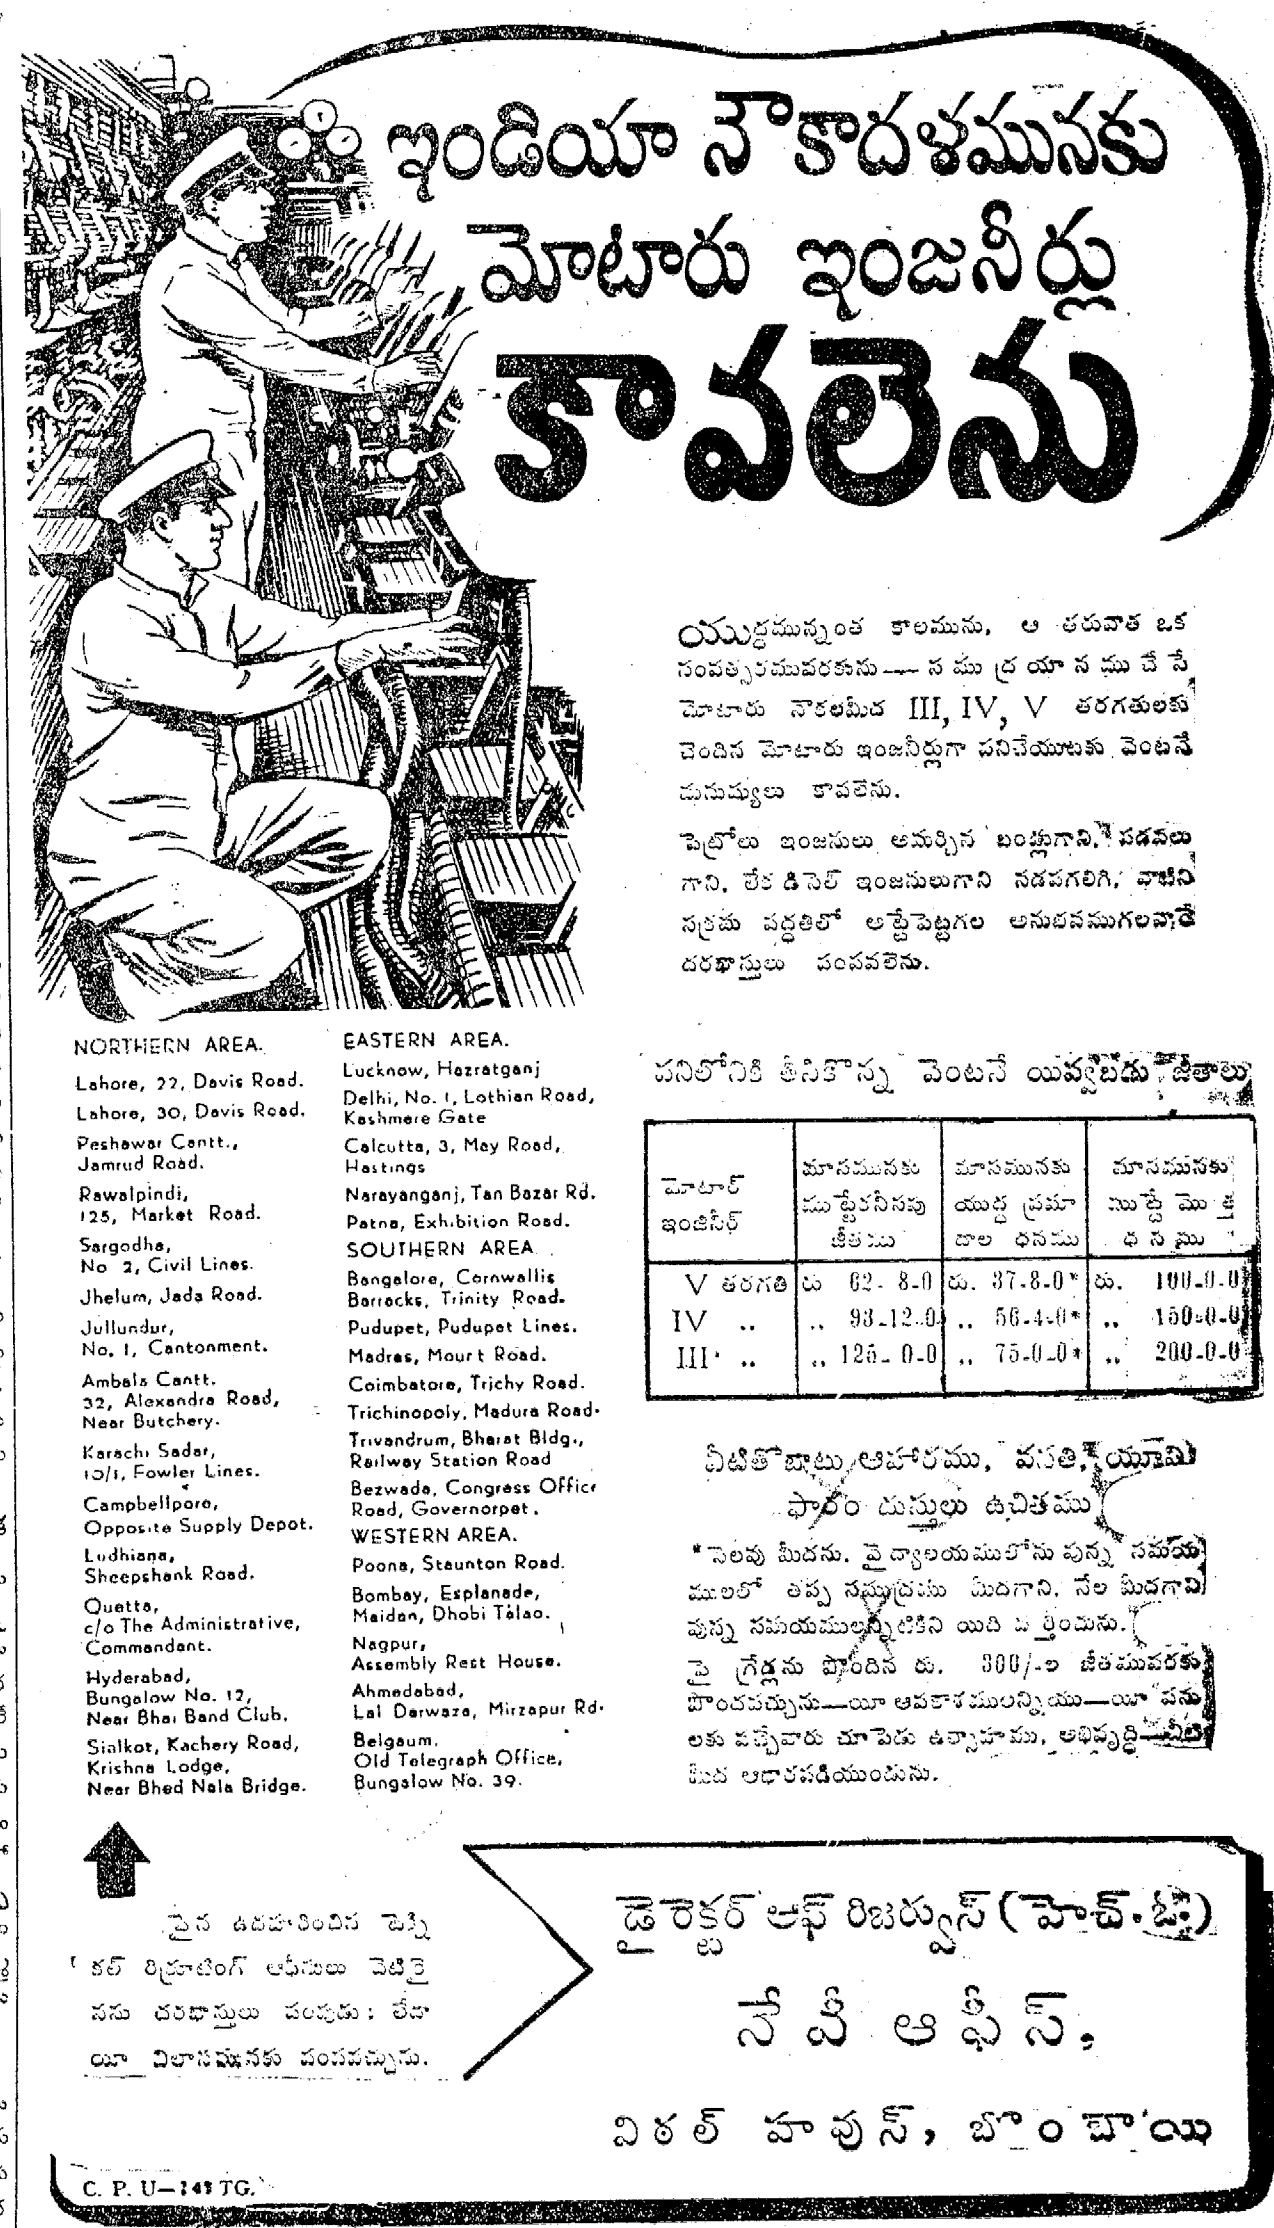 ఇండియా నౌకాదళమునకు
మోటారు ఇంజనీర్లు
కావలెను
యుద్ధమున్నంత కాలమును, ఆ తరువాత ఒక
సంవత్సరమువరకును—స ము ద్ర యా న ము చే సే
మోటారు నౌకలమీద III, IV, V తరగతులకు
చెందిన మోటారు ఇంజనీర్లుగా పనిచేయుటకు వెంటనే
మనుష్యులు కావలెను.
పెట్రోలు ఇంజనులు అమర్చిన బండ్లుగాని, పడవలు
గాని, లేక డీసెల్ ఇంజనులుగాని నడపగలిగి, వాటిని
సక్రమ పద్ధతిలో అట్టేపెట్టగల అనుభవముగలవారే
దరఖాస్తులు పంపవలెను.
NORTHERN AREA.
Lahore, 22, Davis Road.
Lahore, 30, Davis Road.
Peshawar Cantt.,
Jamrud Road.
Rawalpindi,
125, Market Road.
Sargodha,
No 2, Civil Lines.
Jhelum, Jada Road.
Jullundur,
No. 1, Cantonment.
Ambala Cantt.
32, Alexandra Road,
Near Butchery.
Karachi Sadar,
10/1, Fowler Lines.
Campbellpore,
Opposite Supply Depot.
Ludhiana,
Sheepshank Road.
Quetta,
c/o The Administrative,
Commandant.
Hyderabad,
Bungalow No. 12,
Near Bhai Band Club.
Sialkot, Kachery Road,
Krishna Lodge,
Near Bhed Nala Bridge.
EASTERN AREA.
Lucknow, Hazratganj
Delhi, No. 1, Lothian Road,
Kashmere Gate
Calcutta, 3, May Road,
Hastings
Narayanganj, Tan Bazar Rd.
Patna, Exhibition Road.
SOUTHERN AREA.
Bangalore, Cornwallis
Barracks, Trinity Road.
Pudupet, Pudupet Lines.
Madras, Mount Road.
Coimbatore, Trichy Road.
Trichinopoly, Madura Road.
Trivandrum, Bharat Bldg.,
Railway Station Road
Bezwada, Congress Office
Road, Governorpet.
WESTERN AREA.
Poona, Staunton Road.
Bombay, Esplanade,
Maidan, Dhobi Talao.
Nagpur,
Assembly Rest House.
Ahmedabad,
Lal Darwaza, Mirzapur Rd.
Belgaum.
Old Telegraph Office,
Bungalow No. 39.
పనిలోనికి తీసికొన్న వెంటనే యివ్వబడు జీతాలు
మోటార్ ఇంజినీర్ మాసమునకు ముట్టేకనీసపు జీతము మాసమునకు యుద్ధ ప్రమాదాల ధనము మాసమునకు ముట్టే మొత్త ధనము
V తరగతి రు 62- 8-0 రు. 37-8-0* రు. 100-0-0
IV ,, ,, 93-12-0 ,, 56-4-0* ,, 150-0-0
III ,, ,, 125- 0-0 ,, 75-0-0* ,, 200-0-0
వీటితోబాటు ఆహారము, వసతి, యూని
ఫారం దుస్తులు ఉచితము
*సెలవు మీదను, వైద్యాలయములోను వున్న సమయ
ములలో తప్ప సముద్రము మీదగాని, నేల మీదగాని
వున్న సమయములన్నిటికిని యిది వర్తించును.
పై గ్రేడ్లను పొందిన రు. 300/-ల జీతమువరకు
పొందవచ్చును—యీ అవకాశములన్నియు—యీ పను
లకు వచ్చేవారు చూపెడు ఉత్సాహము, అభివృద్ధి—వీటి
మీద ఆధారపడియుండును.
పైన ఉదహరించిన టెక్ని
కల్ రిక్రూటింగ్ ఆఫీసులు వేటికై
నను దరఖాస్తులు పంపుడు; లేదా
యీ విలాసమునకు పంపవచ్చును.
డైరెక్టర్ ఆఫ్ రిజర్వుస్ (హెచ్. ఓ.)
నేవీ ఆఫీస్,
విఠల్ హవుస్, బొంబాయి
C. P. U— TG.